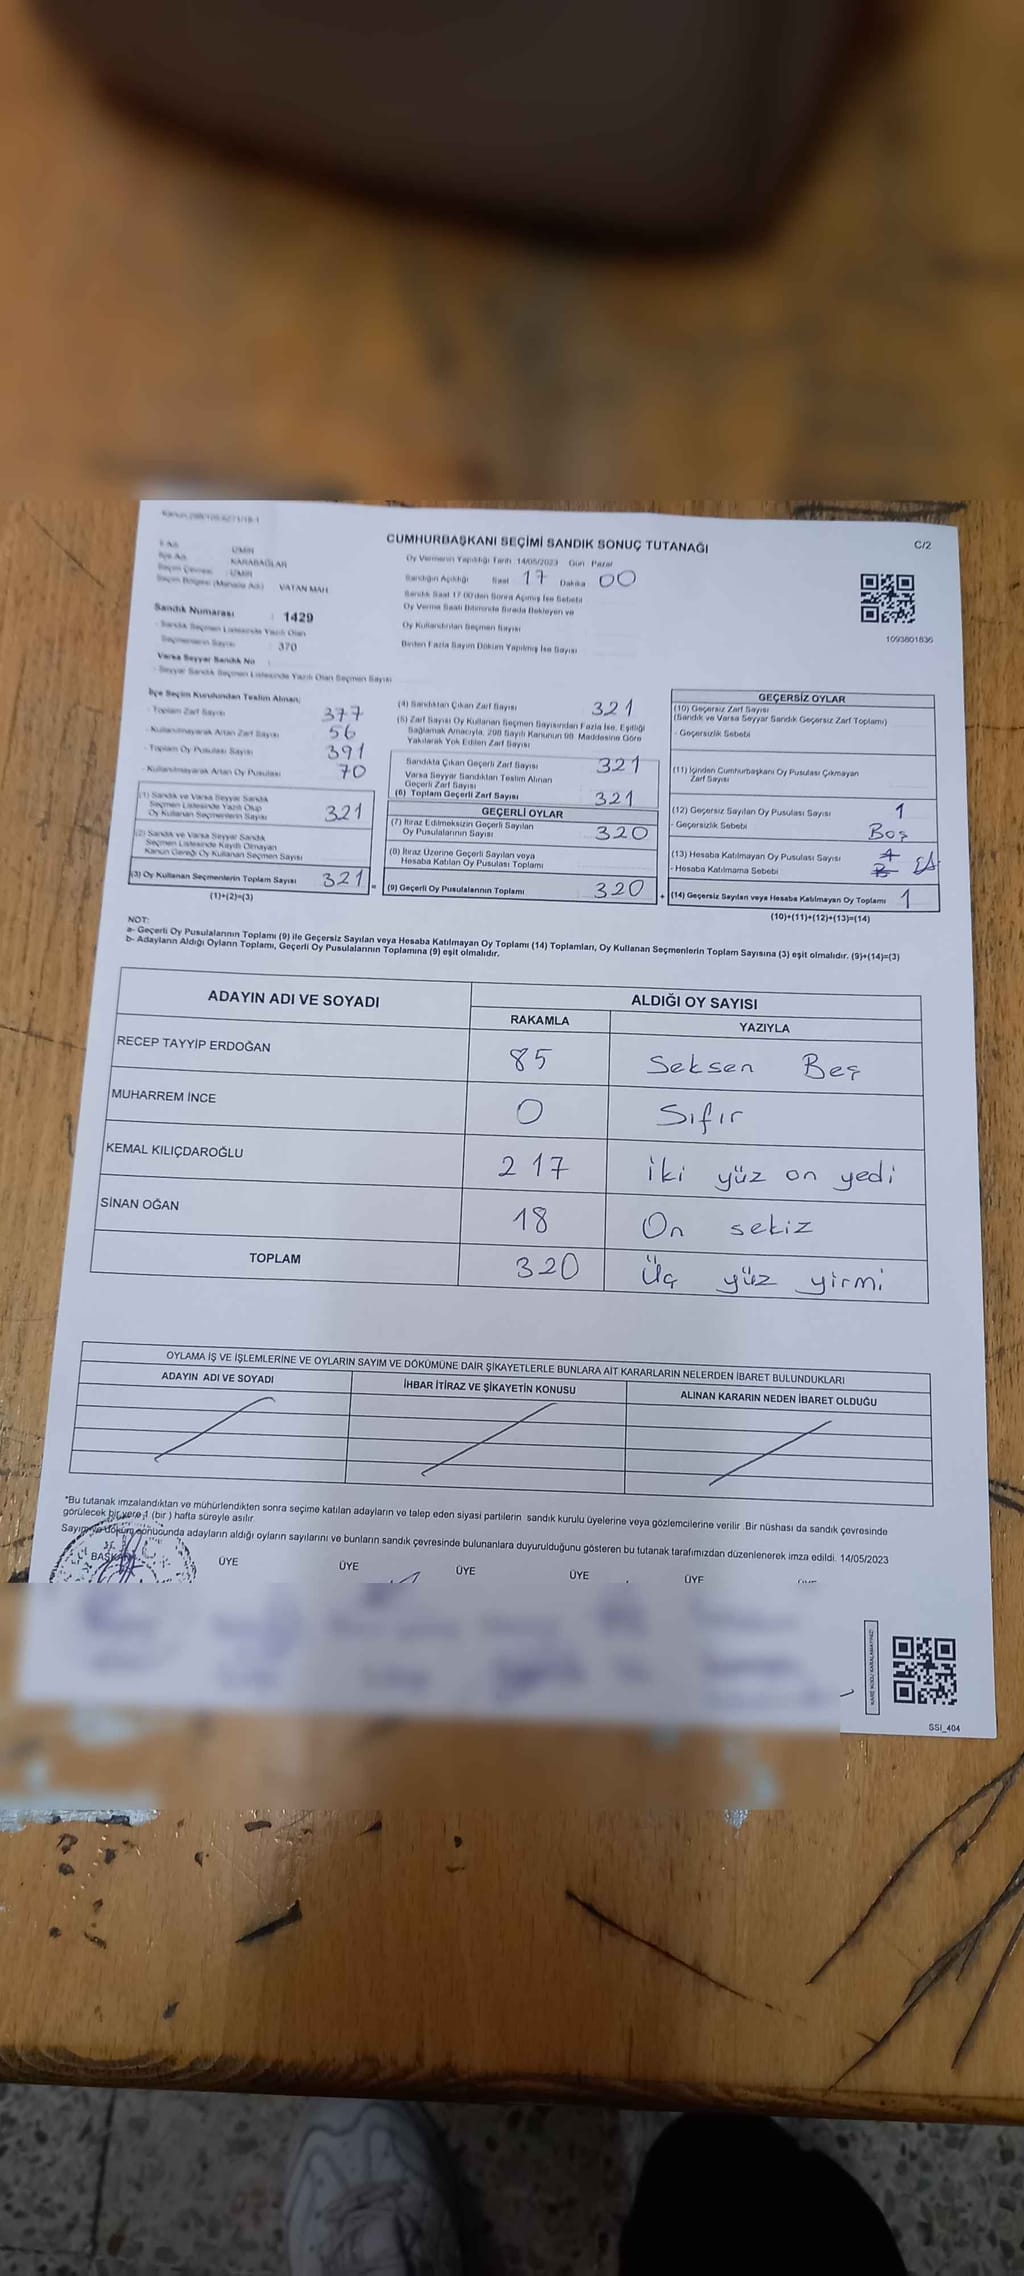 CUMHURBAŞKANI SEÇİMİ SANDIK SONUÇ TUTANAĞI
C/2
İli Adı : İZMİR
İlçe Adı : KARABAĞLAR
Seçim Çevresi : İZMİR
Seçim Bölgesi (Mahalle Adı) : VATAN MAH
Oy Vermenin Yapıldığı Tarih: 14/05/2023 Gün: Pazar
Sandığın Açıldığı Saat 17 Dakika 00
Sandık Saat 17:00'den Sonra Açılmış İse Sebebi
Oy Verme Saati Bitiminde Sırada Bekleyen ve
Oy Kullandırılan Seçmen Sayısı
Birden Fazla Sayım Döküm Yapılmış İse Sayısı
1093801836
Sandık Numarası : 1429
- Sandık Seçmen Listesinde Yazılı Olan
Seçmenlerin Sayısı : 370
Varsa Seyyar Sandık No :
- Seyyar Sandık Seçmen Listesinde Yazılı Olan Seçmen Sayısı
İlçe Seçim Kurulundan Teslim Alınan;
- Toplam Zarf Sayısı 377
- Kullanılmayarak Artan Zarf Sayısı 56
- Toplam Oy Pusulası Sayısı 391
- Kullanılmayarak Artan Oy Pusulası 70
(1) Sandık ve Varsa Seyyar Sandık
Seçmen Listesinde Yazılı Olup
Oy Kullanan Seçmenlerin Sayısı 321
(2) Sandık ve Varsa Seyyar Sandık
Seçmen Listesinde Kayıtlı Olmayan
Kanun Gereği Oy Kullanan Seçmen Sayısı
(3) Oy Kullanan Seçmenlerin Toplam Sayısı 321 =
(1)+(2)=(3)
(4) Sandıktan Çıkan Zarf Sayısı 321
(5) Zarf Sayısı Oy Kullanan Seçmen Sayısından Fazla İse, Eşitliği
Sağlamak Amacıyla, 298 Sayılı Kanunun 98. Maddesine Göre
Yakılarak Yok Edilen Zarf Sayısı
Sandıkta Çıkan Geçerli Zarf Sayısı 321
Varsa Seyyar Sandıktan Teslim Alınan
Geçerli Zarf Sayısı
(6) Toplam Geçerli Zarf Sayısı 321
GEÇERLİ OYLAR
(7) İtiraz Edilmeksizin Geçerli Sayılan
Oy Pusulalarının Sayısı 320
(8) İtiraz Üzerine Geçerli Sayılan veya
Hesaba Katılan Oy Pusulası Toplamı
(9) Geçerli Oy Pusulalarının Toplamı 320 +
GEÇERSİZ OYLAR
(10) Geçersiz Zarf Sayısı
(Sandık ve Varsa Seyyar Sandık Geçersiz Zarf Toplamı)
- Geçersizlik Sebebi
(11) İçinden Cumhurbaşkanı Oy Pusulası Çıkmayan
Zarf Sayısı
(12) Geçersiz Sayılan Oy Pusulası Sayısı 1
- Geçersizlik Sebebi Boş
(13) Hesaba Katılmayan Oy Pusulası Sayısı
- Hesaba Katılmama Sebebi
(14) Geçersiz Sayılan veya Hesaba Katılmayan Oy Toplamı 1
(10)+(11)+(12)+(13)=(14)
NOT:
a- Geçerli Oy Pusulalarının Toplamı (9) ile Geçersiz Sayılan veya Hesaba Katılmayan Oy Toplamı (14) Toplamları, Oy Kullanan Seçmenlerin Toplam Sayısına (3) eşit olmalıdır. (9)+(14)=(3)
b- Adayların Aldığı Oyların Toplamı, Geçerli Oy Pusulalarının Toplamına (9) eşit olmalıdır.
ADAYIN ADI VE SOYADI
ALDIĞI OY SAYISI
RAKAMLA
YAZIYLA
RECEP TAYYİP ERDOĞAN 85 Seksen Beş
MUHARREM İNCE 0 Sıfır
KEMAL KILIÇDAROĞLU 217 iki yüz on yedi
SİNAN OĞAN 18 On sekiz
TOPLAM 320 Üç yüz yirmi
OYLAMA İŞ VE İŞLEMLERİNE VE OYLARIN SAYIM VE DÖKÜMÜNE DAİR ŞİKAYETLERLE BUNLARA AİT KARARLARIN NELERDEN İBARET BULUNDUKLARI
ADAYIN ADI VE SOYADI
İHBAR İTİRAZ VE ŞİKAYETİN KONUSU
ALINAN KARARIN NEDEN İBARET OLDUĞU
*Bu tutanak imzalandıktan ve mühürlendikten sonra seçime katılan adayların ve talep eden siyasi partilerin sandık kurulu üyelerine veya gözlemcilerine verilir .Bir nüshası da sandık çevresinde
görülecek bir yere 1 (bir ) hafta süreyle asılır.
Sayım ve döküm sonucunda adayların aldığı oyların sayılarını ve bunların sandık çevresinde bulunanlara duyurulduğunu gösteren bu tutanak tarafımızdan düzenlenerek imza edildi. 14/05/2023
BAŞKAN ÜYE ÜYE ÜYE ÜYE ÜYE
KARE KODU KARALAMAYINIZ!
SSI_404